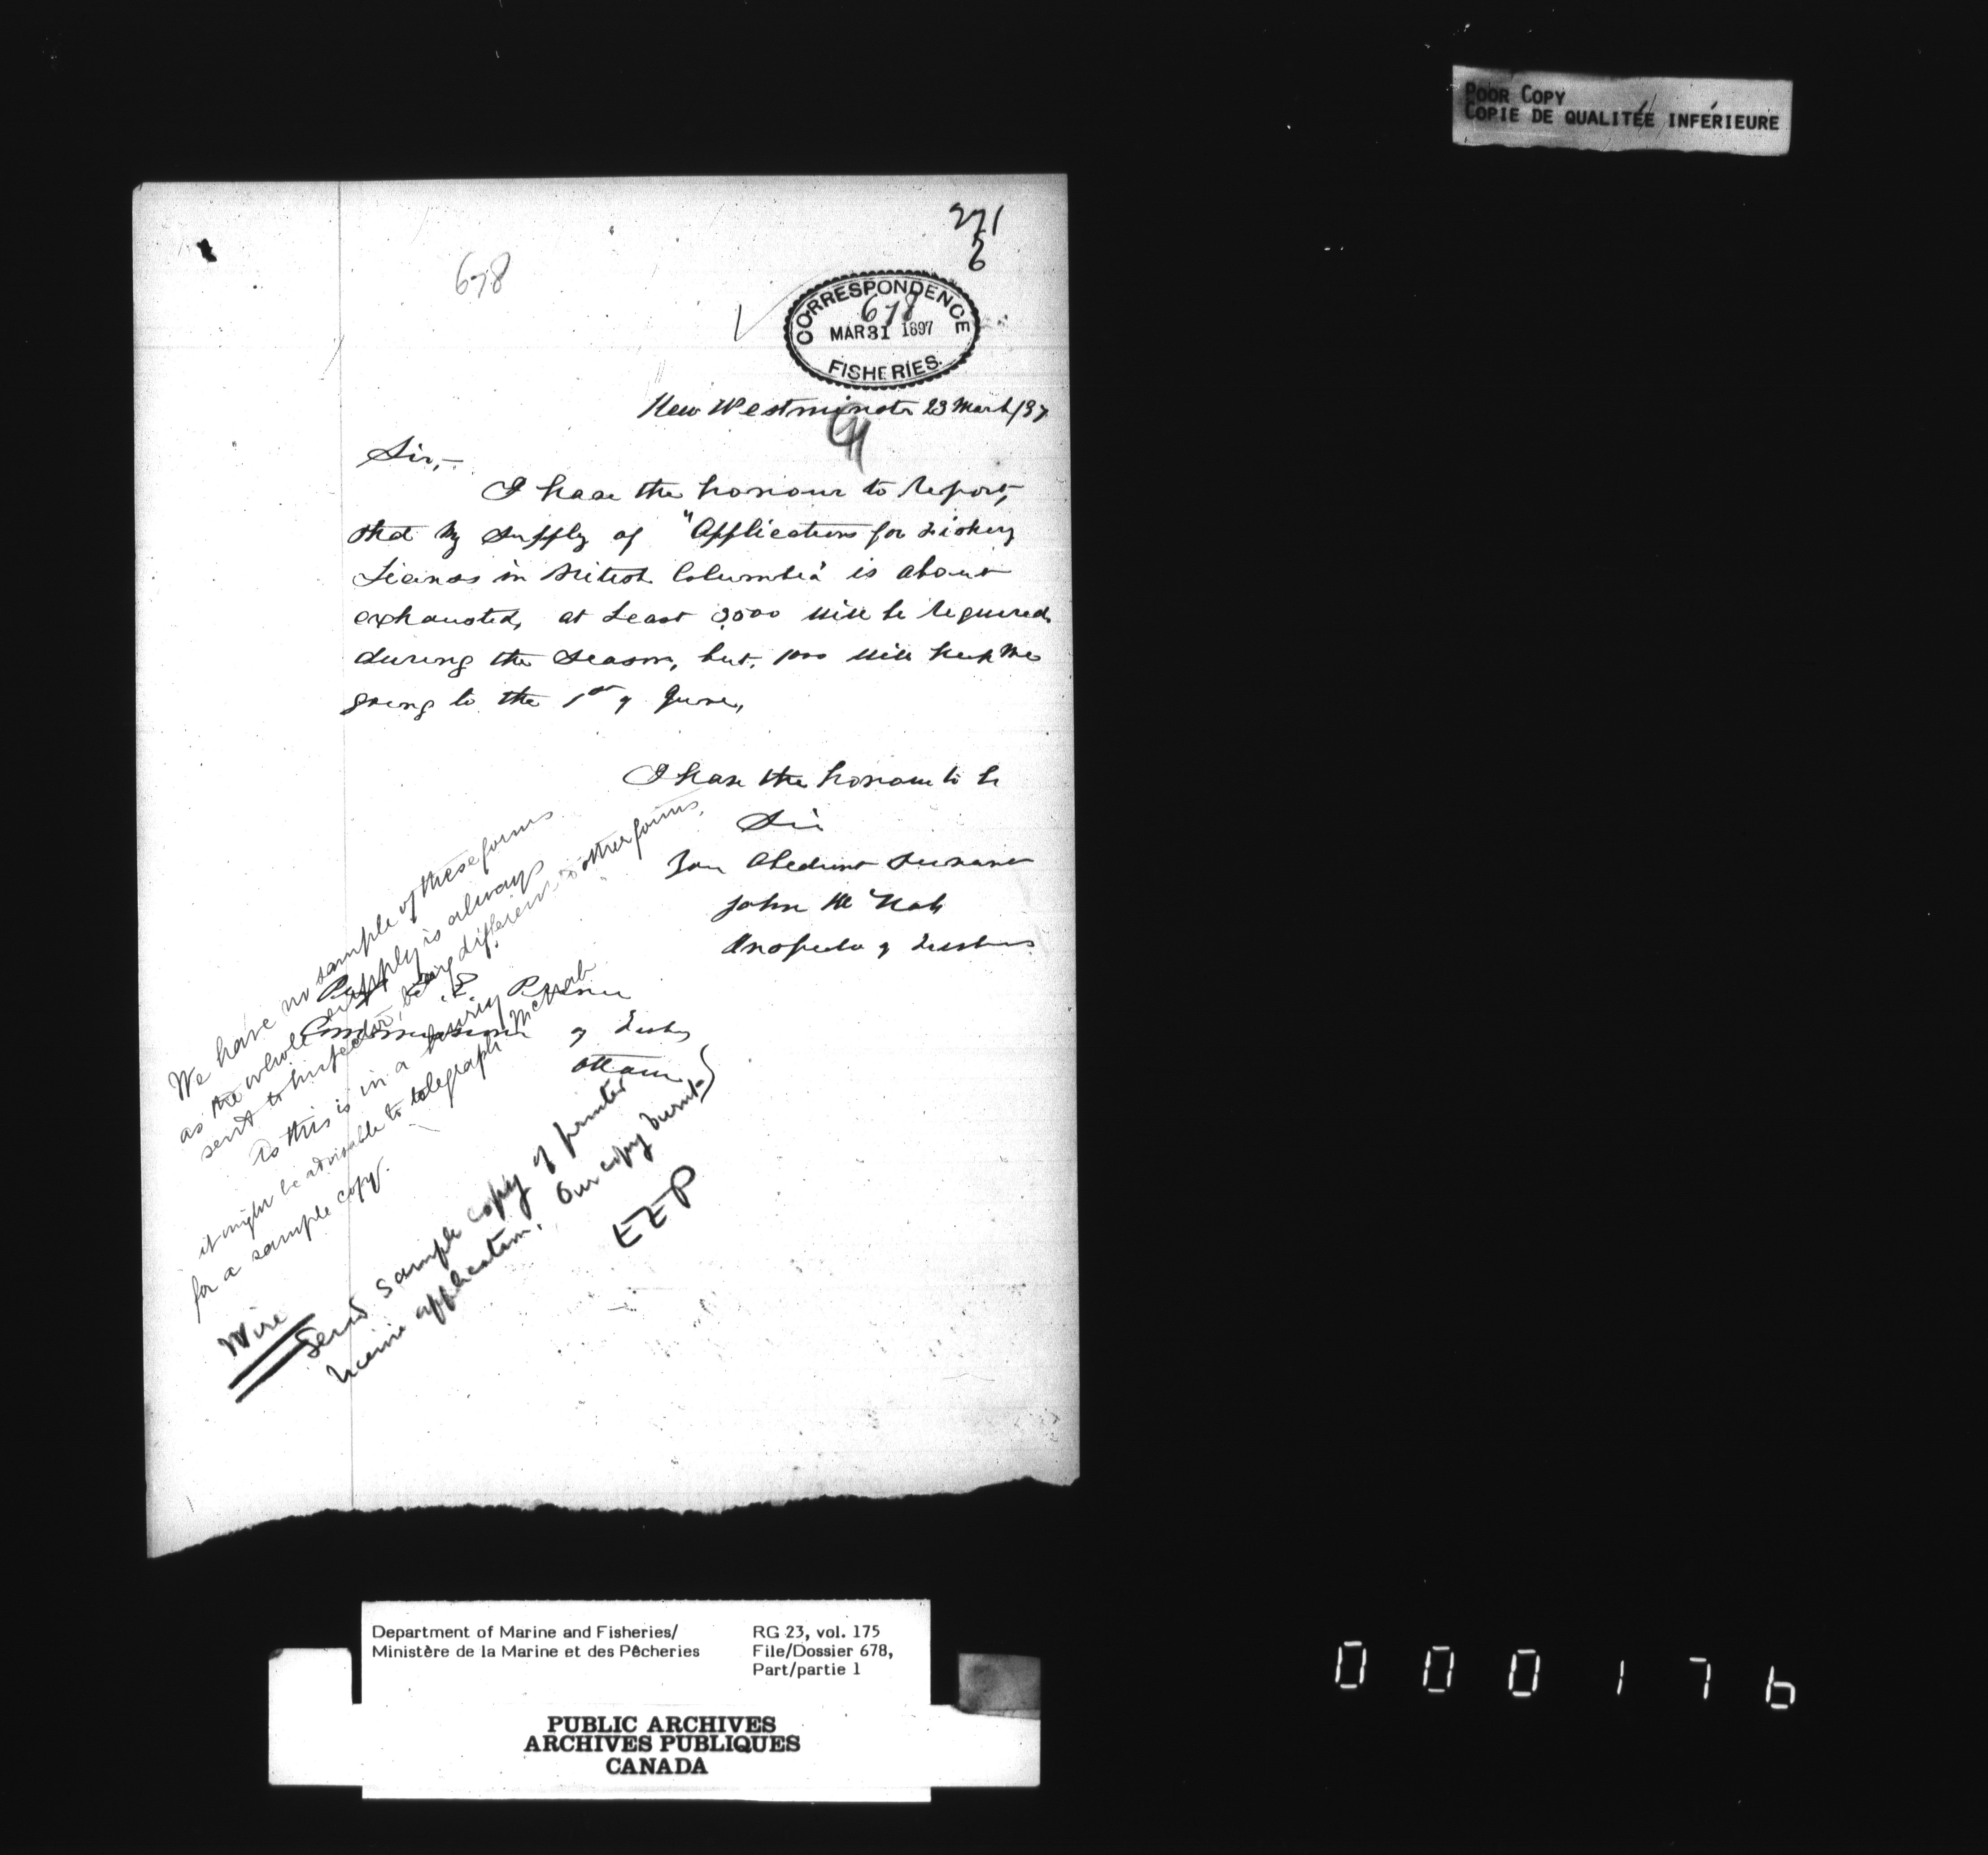 POOR COPY
COPIE DE QUALITÉE INFÉRIEURE
271
6
678
CORRESPONDENCE
678
MAR 31 1897
FISHERIES.
New Westminster 23 March/97
Sir,—
I have the honour to Report,
that my supply of "Applications for Fishery
Licenses in British Columbia" is about
exhausted, at least 3000 will be required
during the season, but, 1000 will keep me
going to the 1st of June,
I have the honour to be
Sir
Your Obedient Servant
John McNab
Inspector of Fisheries
Prof. E. E. Prince
Commissioner of Fisheries
Ottawa
We have no sample of these forms
as the whole supply is always
sent to Inspector, being different to other forms.
As this is in a hurry
it might be advisable to telegraph McNab
for a sample copy.
Wire
Send sample copy of printed
license application. Our copy burnt.
EEP
Department of Marine and Fisheries/
Ministère de la Marine et des Pêcheries
RG 23, vol. 175
File/Dossier 678,
Part/partie 1
PUBLIC ARCHIVES
ARCHIVES PUBLIQUES
CANADA
000176